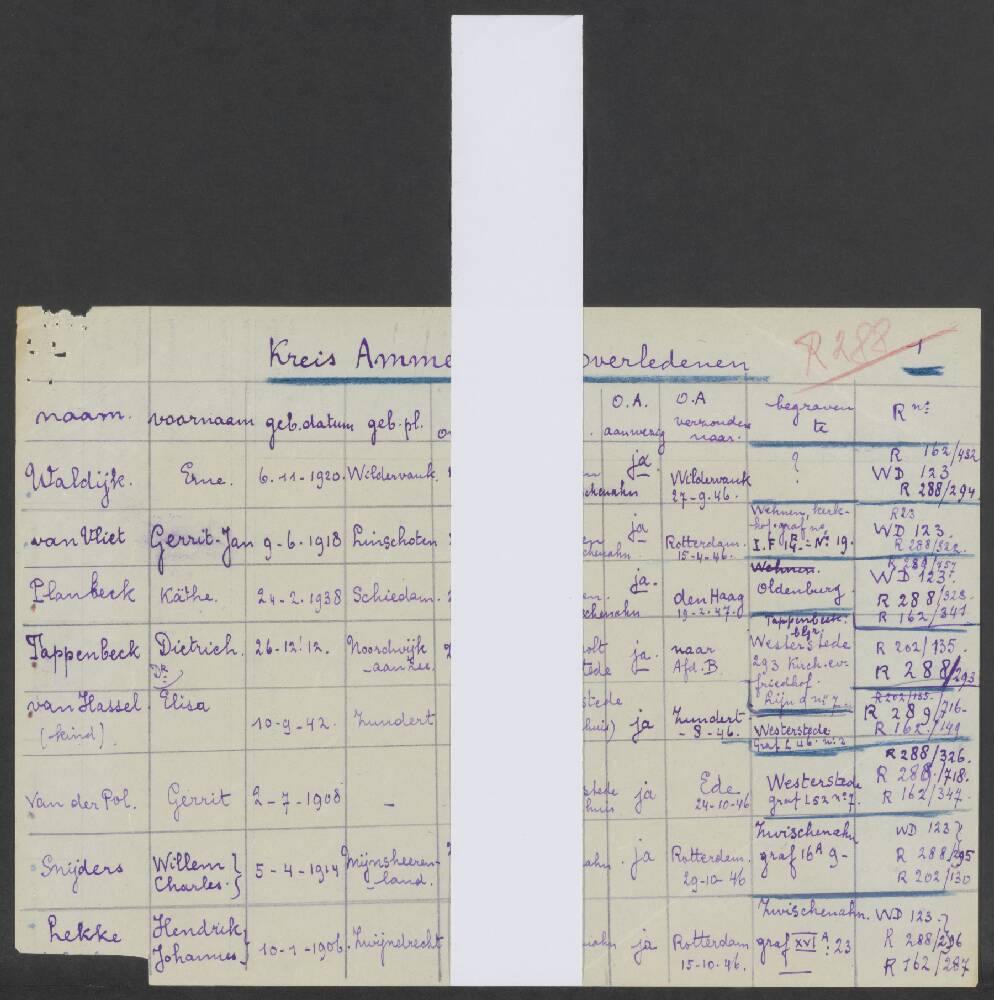 Kreis Amme overledenen R 288 1
naam. voornaam geb.datum geb.pl. O.A. aanwezig O.A verzonden naar. begraven te R nos
Waldijk. Erne. 6-11-1920. Wildervank. ja Wildervank 27-9-46. ? R 162/432
WD 123
R 288/294
van Vliet Gerrit-Jan 9-6-1918 Linschoten ja Rotterdam. 15-4-46. Wehnen, kerk-
hof. graf no R23
WD 123.
I.F 19. = No 19. R 288/322.
Planbeek Käthe. 24-2-1938 Schiedam. ja. den Haag 19-2-47. Wehnen.
Oldenburg. R 289/757
WD 123.
R 288/328.
R 162/341
Tappenbeck Dietrich. Dr. 26-12-'12. Noordwijk aan Zee. ja. naar Afd. B Tappenbeck.
Westerstede
293 Kirch.ev.
friedhof.
Lijn d no 7. R 202/135.
R 288/293
van Hassel (kind) Elisa 10-9-42. Zundert ja Zundert -8-46. Westerstede
graf L 46. no 2 R 202/135.
R 289/716-
R 162/149
van der Pol. Gerrit 2-7-1908 - ja Ede 24-10-46 Westerstede
graf L52 no 7. R 288/326.
R 289/718.
R 162/347.
Snijders Willem Charles. 5-4-1914 Mijnsheeren-
land. ja Rotterdam. 29-10-46 Zwischenahn
graf 16A 9- WD 123
R 288/295
R 202/130
Lekke Hendrik Johannes 10-1-1906. Zwijndrecht ja Rotterdam 15-10-46. Zwischenahn.
graf XVI A: 23 WD 123.
R 288/296
R 162/287